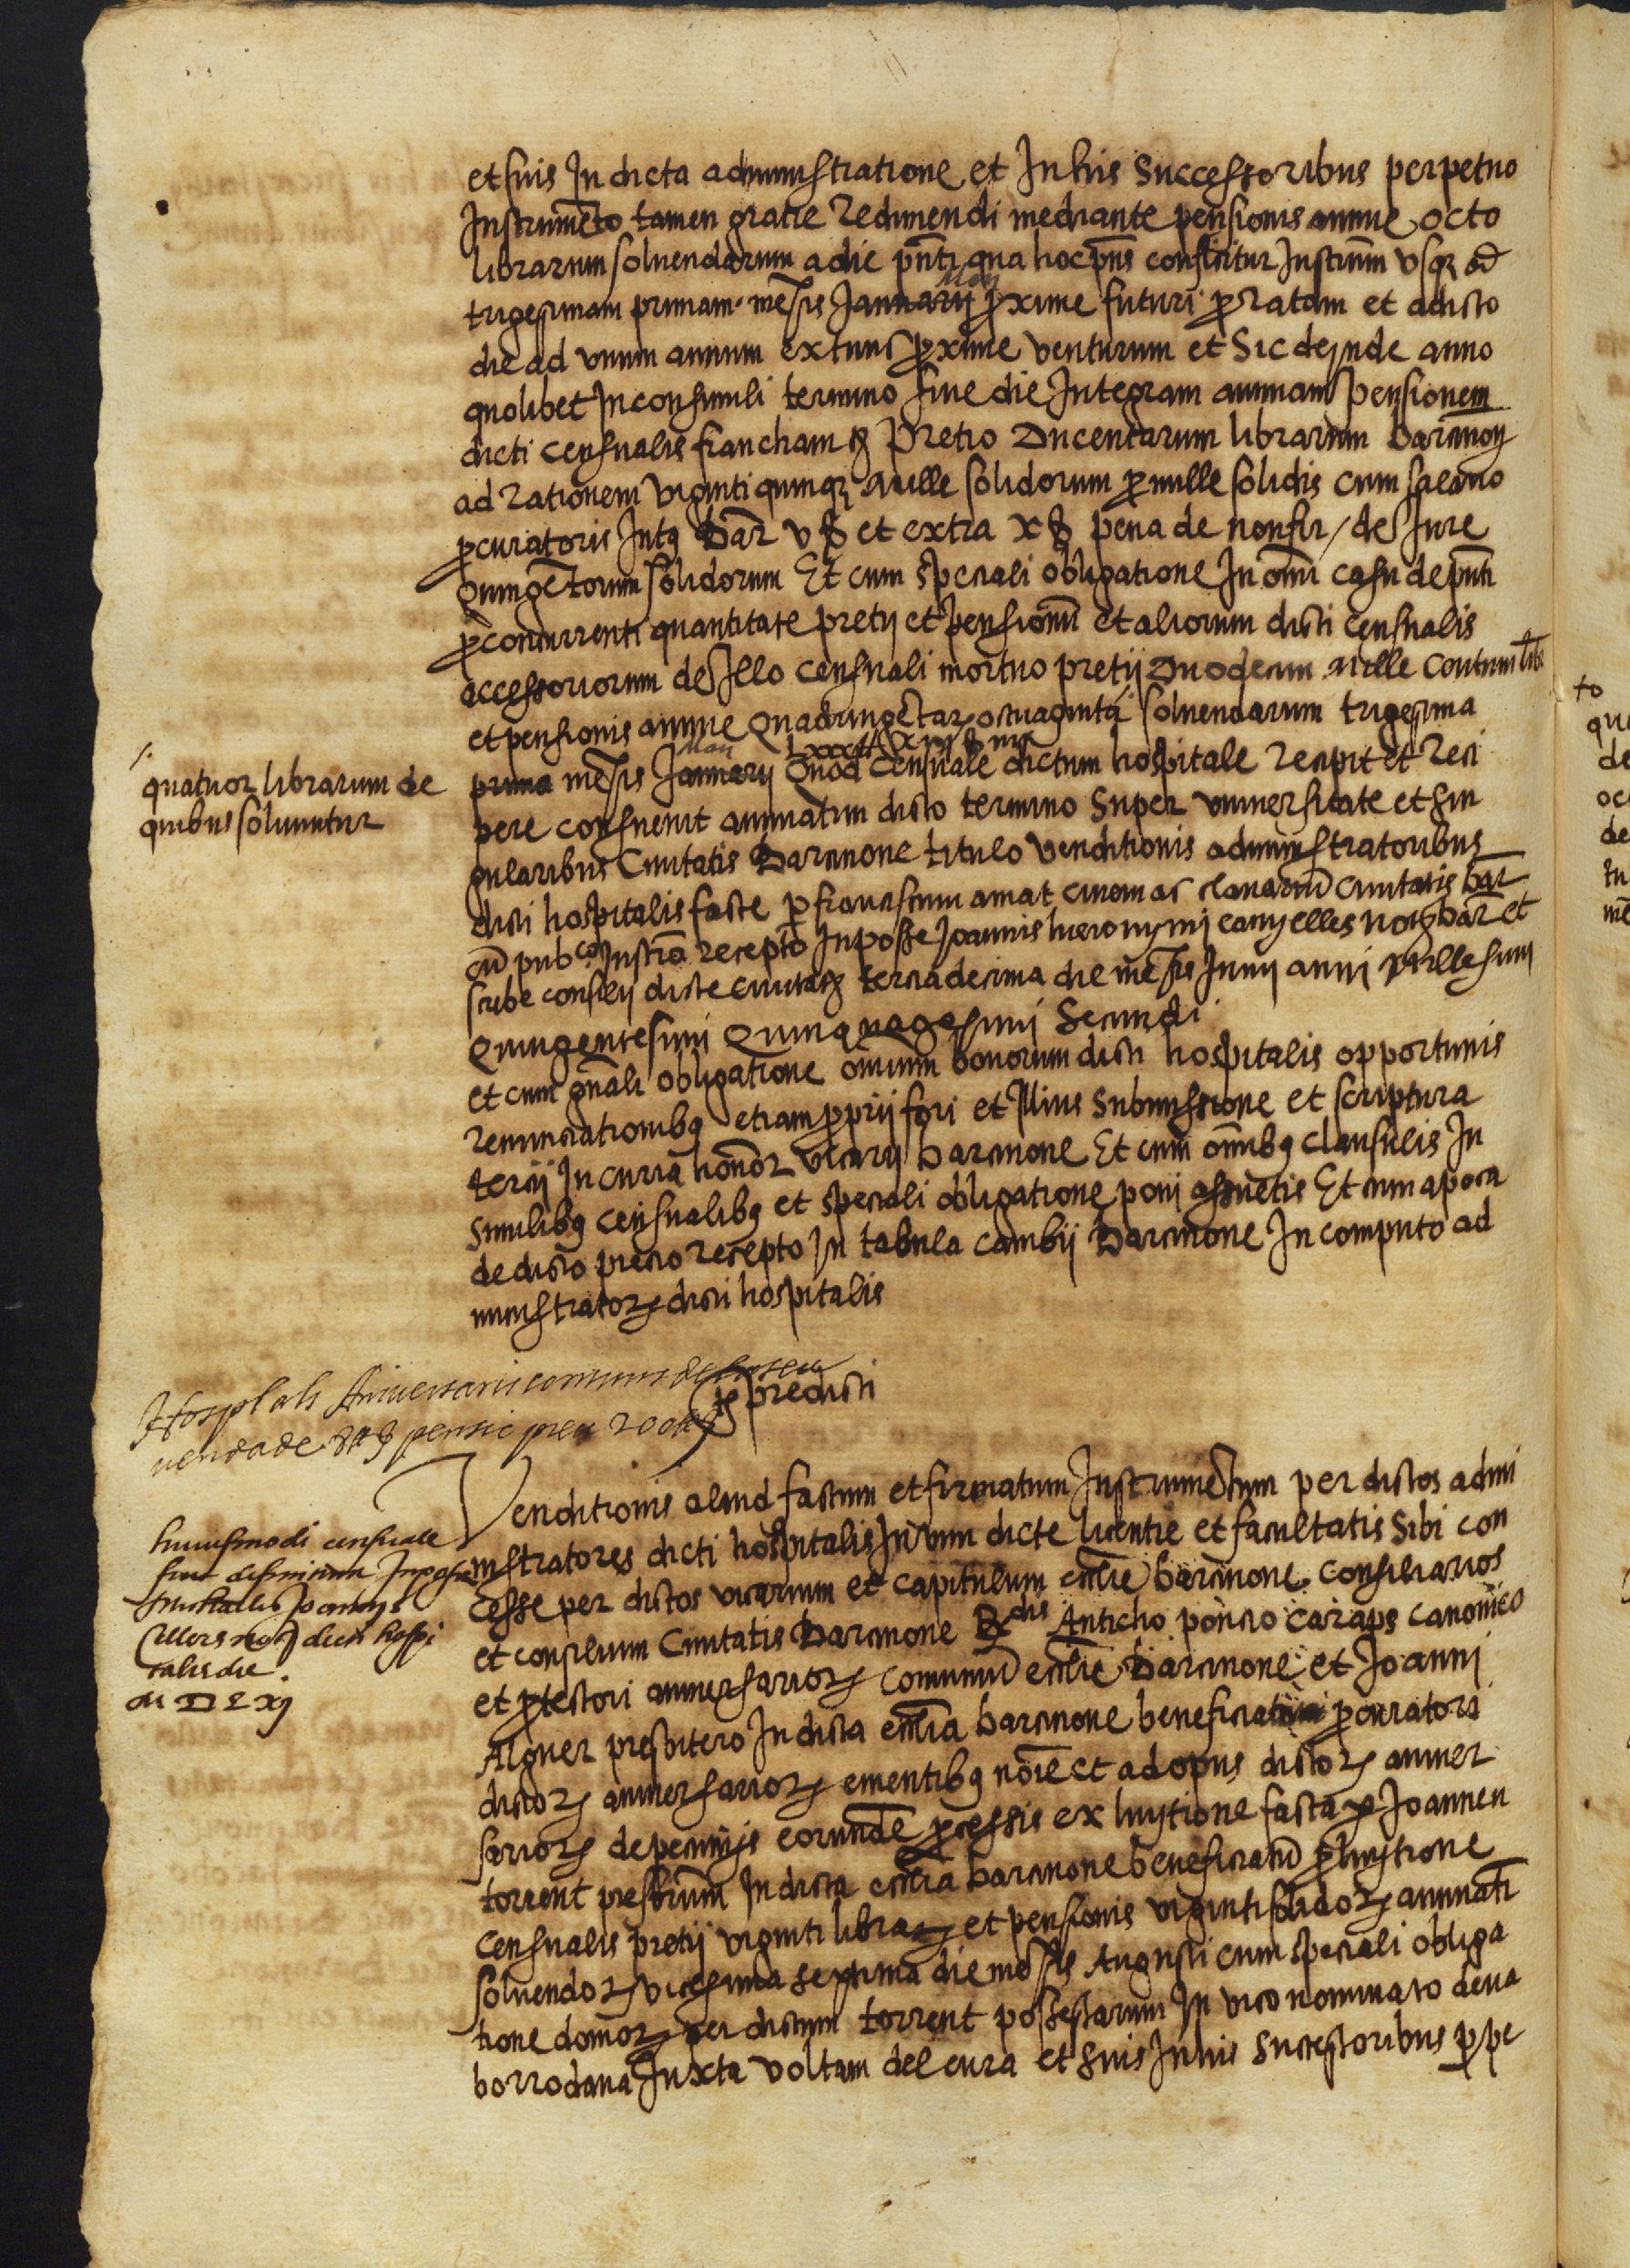 et suis In dicta administratione et In his Successoribus perpetuo
Instrumeto tamen gratie redimendi mediante pensionis annue octo
librarum soluendarum a die pnti qua hoc pns conficitur Instrum usq ad
May
trigesimam primam mesis Januarij pxime futuri p ratam et a dicto
die ad unum annum extunc pxime venturum et Sic deynde anno
quolibet In consimili termino siue die Integram annuam pensionem
dicti censualis francham Pretio Ducentarum librarum Barcinon
ad rationem viginti quinq mille solidorum p mille solidis cum salario
pcuratoris Intq Bar v ß et extra x ß pena de non fir/ de Jure
quingetorum solidorum Et cum speciali obligatione In omi casu de pnti
p concurrenti quantitate pretij et pensionu et aliorum dicti censualis
accessoriorum de Illo censuali mortuo pretij Duodecim mille Centum libr
et pensionis annue Quadringetar octuaginta soluendarum trigesima
May
prima mesis Januarij Quod censuale dictum hospitale recipit et reci
pere consueuit annuatim dicto termino Super uniuersitate et sin
gularibus Ciuitatis Barcinone titulo venditionis administratoribus
dicti hospitalis facte p franciscum amat ciuem ac clauariu ciuitatis bar
cu pubco Instro recepto In posse Joannis hieronymij canyelles not Bar et
scribe consilij dicte ciuitatis terciadecima die mesis Junij anni Millesimi
Quingentesimi Quinquagesimi Secundi
et cum gnali obligatione omnium bonorum dicti hospitalis opportunis
renunciationibq etiam pprij fori et Illius Submissione et scriptura
tercij In curia honor vicarij Barcinone Et cum omibq clausulis In
similibq censualibq et speciali obligatione poni assuetis Et cum apoca
de dicto precio recepto In tabula cambij Barcinone In computo ad
ministrator dicti hospitalis
./.
quatuor librarum de
quibus soluuntur
Hospitals Aniuersaris comuns de la seu
venda de 8 ₶ pensio preu 200 ₶
predicti
Venditionis aliud factum et firmatum Instrumetum per dictos admi
nistratores dicti hospitalis In vim dicte licentie et facultatis Sibi con
cesse per dictos vicarium et capitulum ecclie barcinone. consiliarios
et consilium Ciuitatis Barcinone Rdis Anticho poncio çaraps canonico
et ptectori anniuersarior comuniu ecclie Barcinone et Joanni
Alguer presbitero In dicta ecclia barcinone beneficiato pcuratori
dictor anniuersarior ementibq noie et ad opus dictor anniuer
sarior de pecunijs eorunde pcessis ex luytione facta p Joannem
torrent presbrum In dicta ecclia barcinone beneficiatu p luytione
censualis pretij viginti librar et pensionis viginti solidor annuati
soluendor vicesima septima die mesis Augusti cum speciali obliga
tione domor per dictum torrent possessarum In vico nominato de na
borrodana Juxta voltam del cura et suis In his Successoribus ppe
huiusmodi censuale
fuit definitum In posse
Michaelis Joannis
Cellers not dicti hospi
talis die .
M D L xj